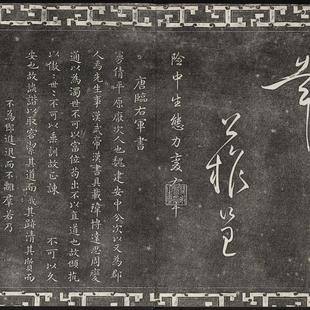 險中生態力變
唐臨右軍書
曼倩平原厭次人魏建安中分次以又為郡
人焉先生事漢武帝漢書具載瑋博達思周變
通以為濁世不可以富位苟出不以直道也故頡抗
以傲世世不可以垂訓故正諫 不可以久
安也故詼諧以取容潔其道而穢其跡清其質而
不為邪進退而不離羣若乃